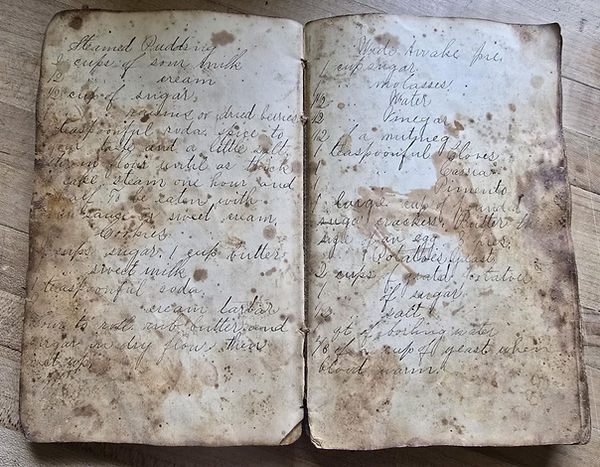 Steamed Pudding
2 cups of sour milk
1/2 " " cream
1/2 cup of sugar
" " raisins or dried berries
teaspoonful soda, spice to
your taste and a little salt
stir in flour until as thick
cake steam one hour and
half To be eaten with
sauce or sweet cream,
Cookies
cups sugar, 1 cup butter
" sweet milk
1 teaspoonful soda,
" cream tartar
flour to roll, rub butter and
sugar in dry flour then
Wide Awake pie
1 cup sugar
1 " molasses
1/2 " Water
1/2 " Vinegar
1/2 " a nutmeg
1 teaspoonful Cloves
1 " Cassia
1 " Pimento
1 large cup of
crackers, Butter the
size of an egg
Potatoes yeast
2 cups potatoes
1 " of sugar
1/2 " salt
qt of boiling water
of a cup of yeast when
blood warm